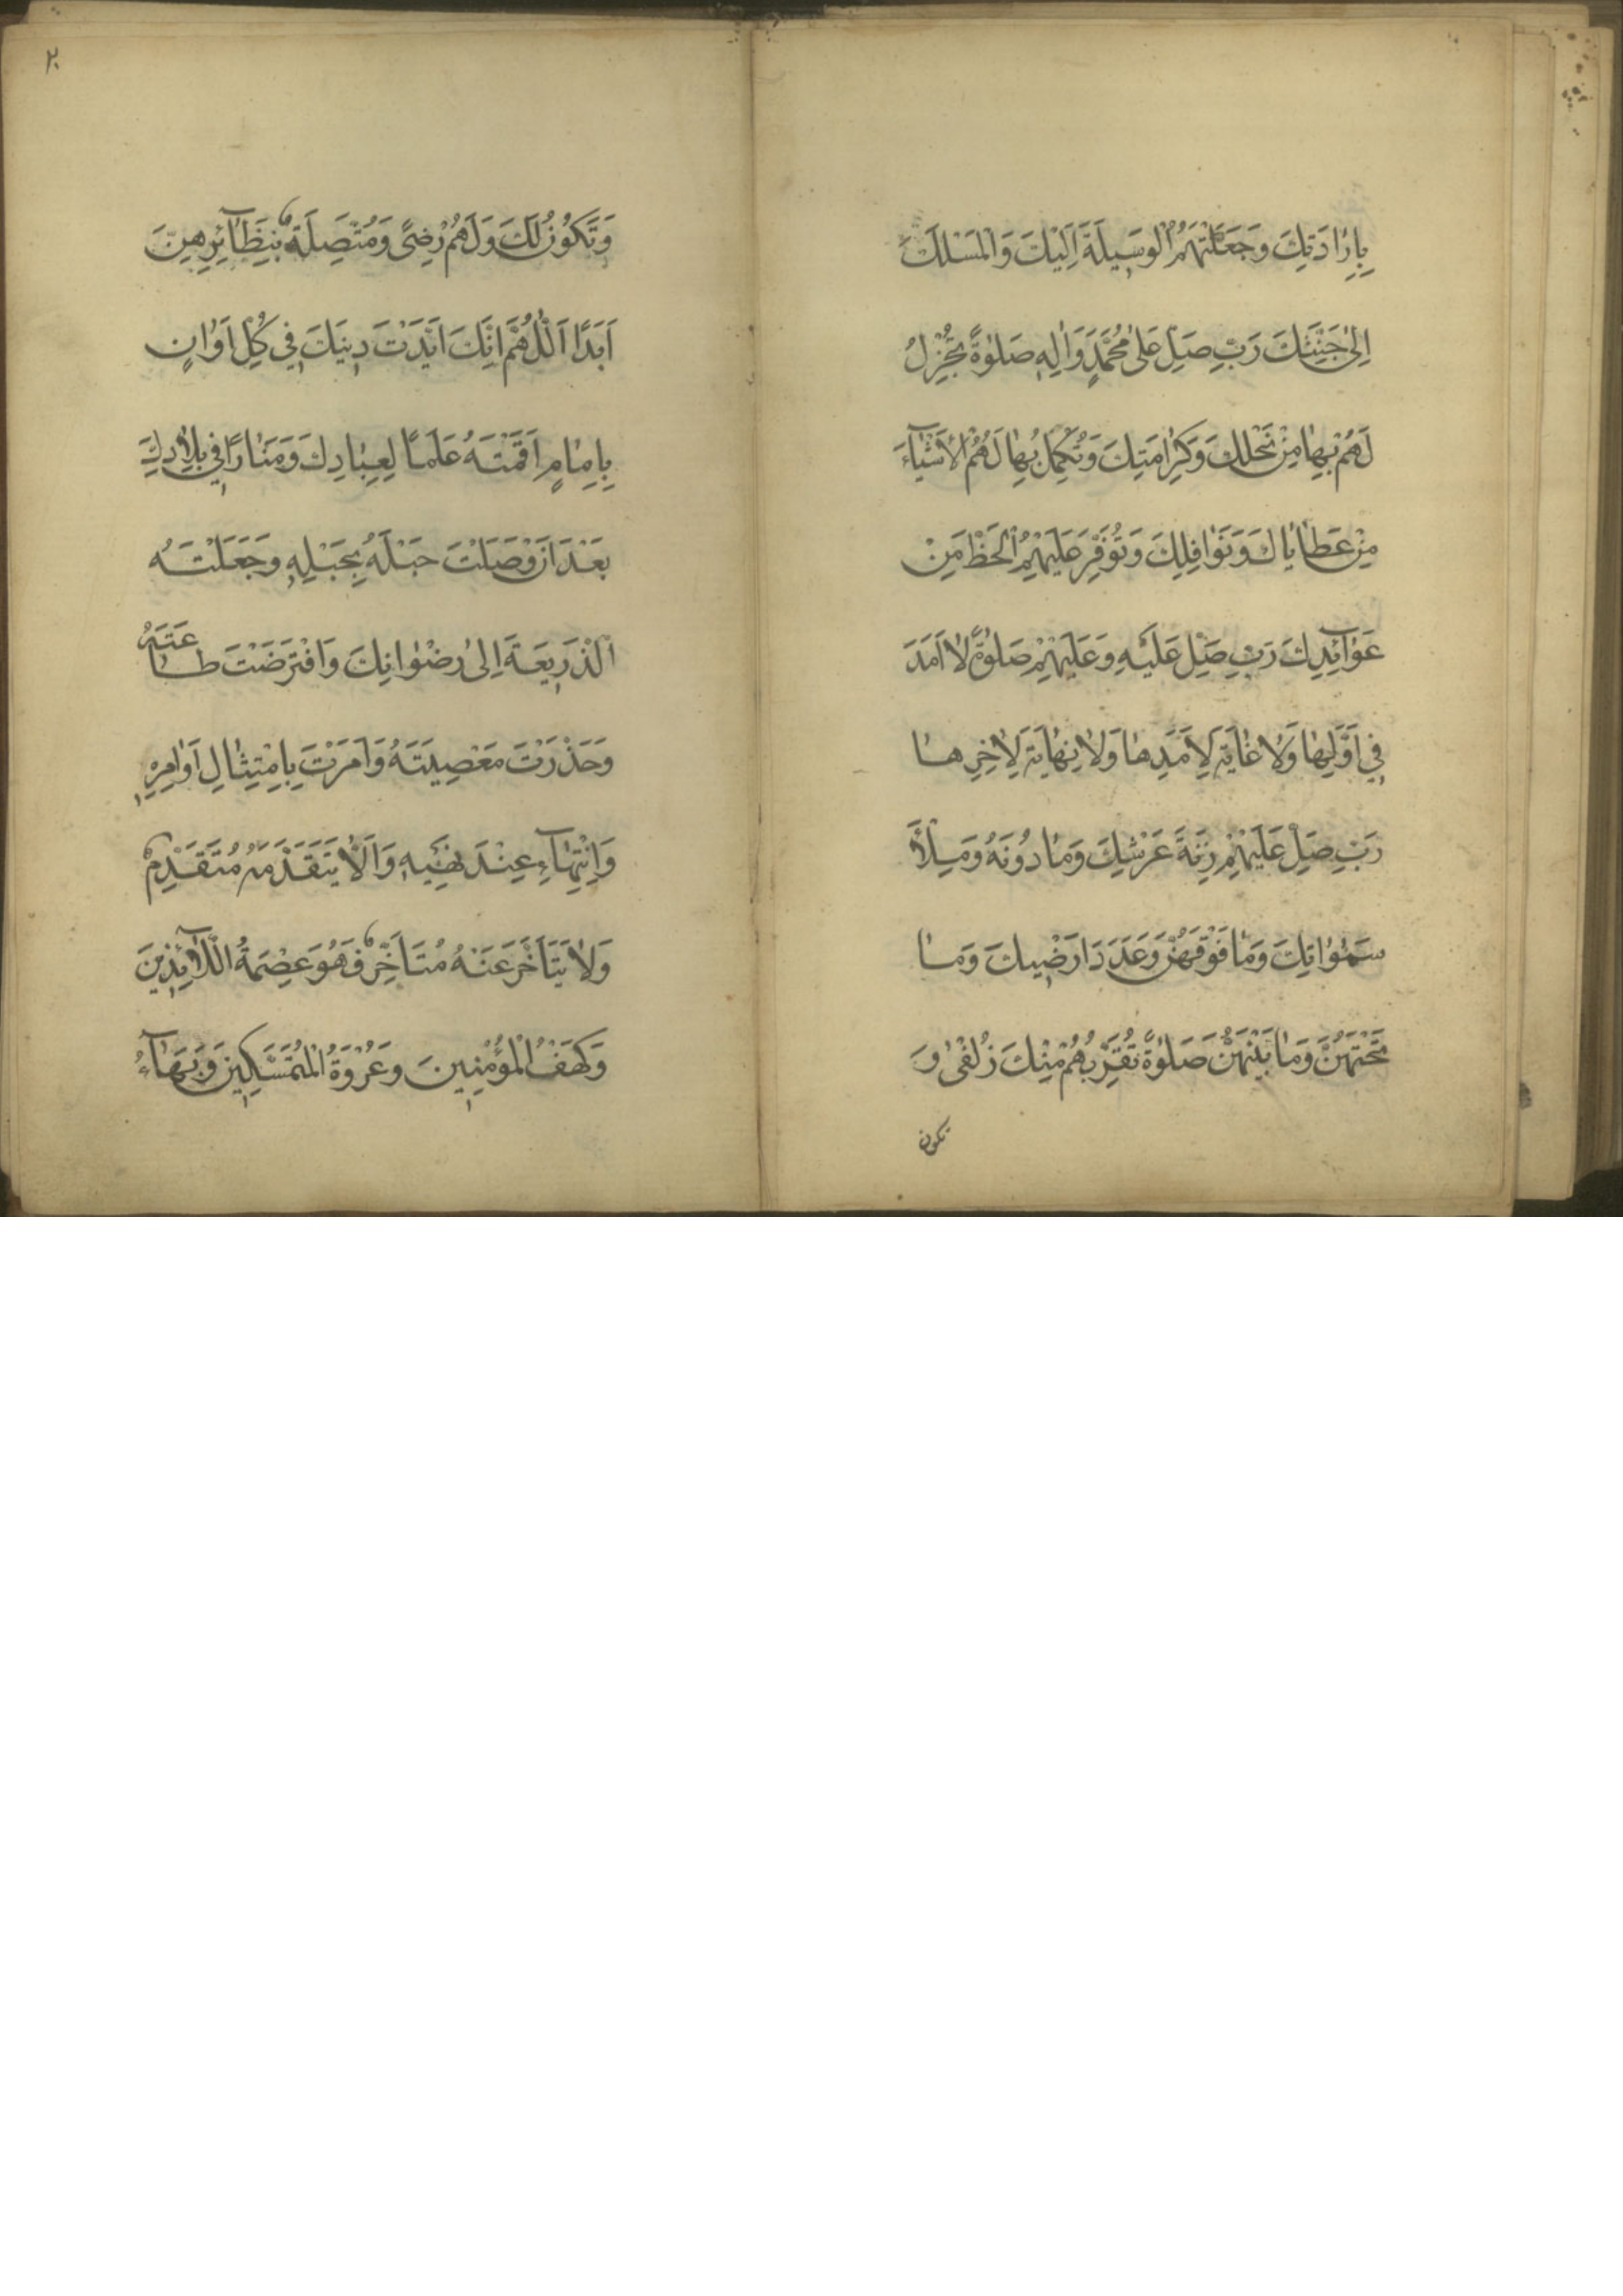 بِاِرٰادَتِكَ وَجَعَلْتَهُمُ الْوَسيلَةَ اِلَيْكَ وَالْمَسْلَكَ
اِلىٰ جَنَّتِكَ رَبِّ صَلِّ عَلىٰ مُحَمَّدٍ وَاٰلِهِ صَلوٰةً تُجْزِلُ
لَهُمْ بِهٰا مِنْ نَحْلِكَ وَكَرٰامَتِكَ وَتُكْمِلُ بِهٰا لَهُمُ الْاَشْيٰآءَ
مِنْ عَطٰايٰاكَ وَنَوٰافِلِكَ وَتُوَفِّرُ عَلَيْهِمُ الْحَظَّ مِنْ
عَوٰآئِدِكَ رَبِّ صَلِّ عَلَيْهِ وَعَلَيْهِمْ صَلوٰةً لٰا اَمَدَ
في اَوَّلِهٰا وَلٰا غٰايَةَ لِاَمَدِهٰا وَلٰا نِهٰايَةَ لِاٰخِرِهٰا
رَبِّ صَلِّ عَلَيْهِمْ زِنَةَ عَرْشِكَ وَمٰا دُونَهُ وَمِلْأَ
سَمٰوٰاتِكَ وَمٰا فَوْقَهُنَّ وَعَدَدَ اَرَضيكَ وَمٰا
تَحْتَهُنَّ وَمٰا بَيْنَهُنَّ صَلوٰةً تُقَرِّبُهُمْ مِنْكَ زُلْفىٰ وَ
تكون
٢٠
وَتَكُونُ لَكَ وَلَهُمْ رِضىً وَمُتَّصِلَةً بِنَظٰآئِرِهِنَّ
اَبَدًا اَللّٰهُمَّ اِنَّكَ اَيَّدْتَ دينَكَ في كُلِّ اَوٰانٍ
بِاِمٰامٍ اَقَمْتَهُ عَلَمًا لِعِبٰادِكَ وَمَنٰارًا في بِلٰادِكَ
بَعْدَ اَنْ وَصَلْتَ حَبْلَهُ بِحَبْلِهِ وَجَعَلْتَهُ
الذَّريعَةَ اِلىٰ رِضْوٰانِكَ وَافْتَرَضْتَ طٰاعَتَهُ
وَحَذَّرْتَ مَعْصِيَتَهُ وَاَمَرْتَ بِامْتِثٰالِ اَوٰامِرِهِ
وَانْتِهٰآءِ عِنْدَ نَهْيِهِ وَاَلّٰا يَتَقَدَّمَهُ مُتَقَدِّمٌ
وَلٰا يَتَاَخَّرَ عَنْهُ مُتَاَخِّرٌ فَهُوَ عِصْمَةُ اللّٰآئِذينَ
وَكَهْفُ الْمُؤْمِنينَ وَعُرْوَةُ الْمُتَمَسِّكينَ وَبَهٰآءُ